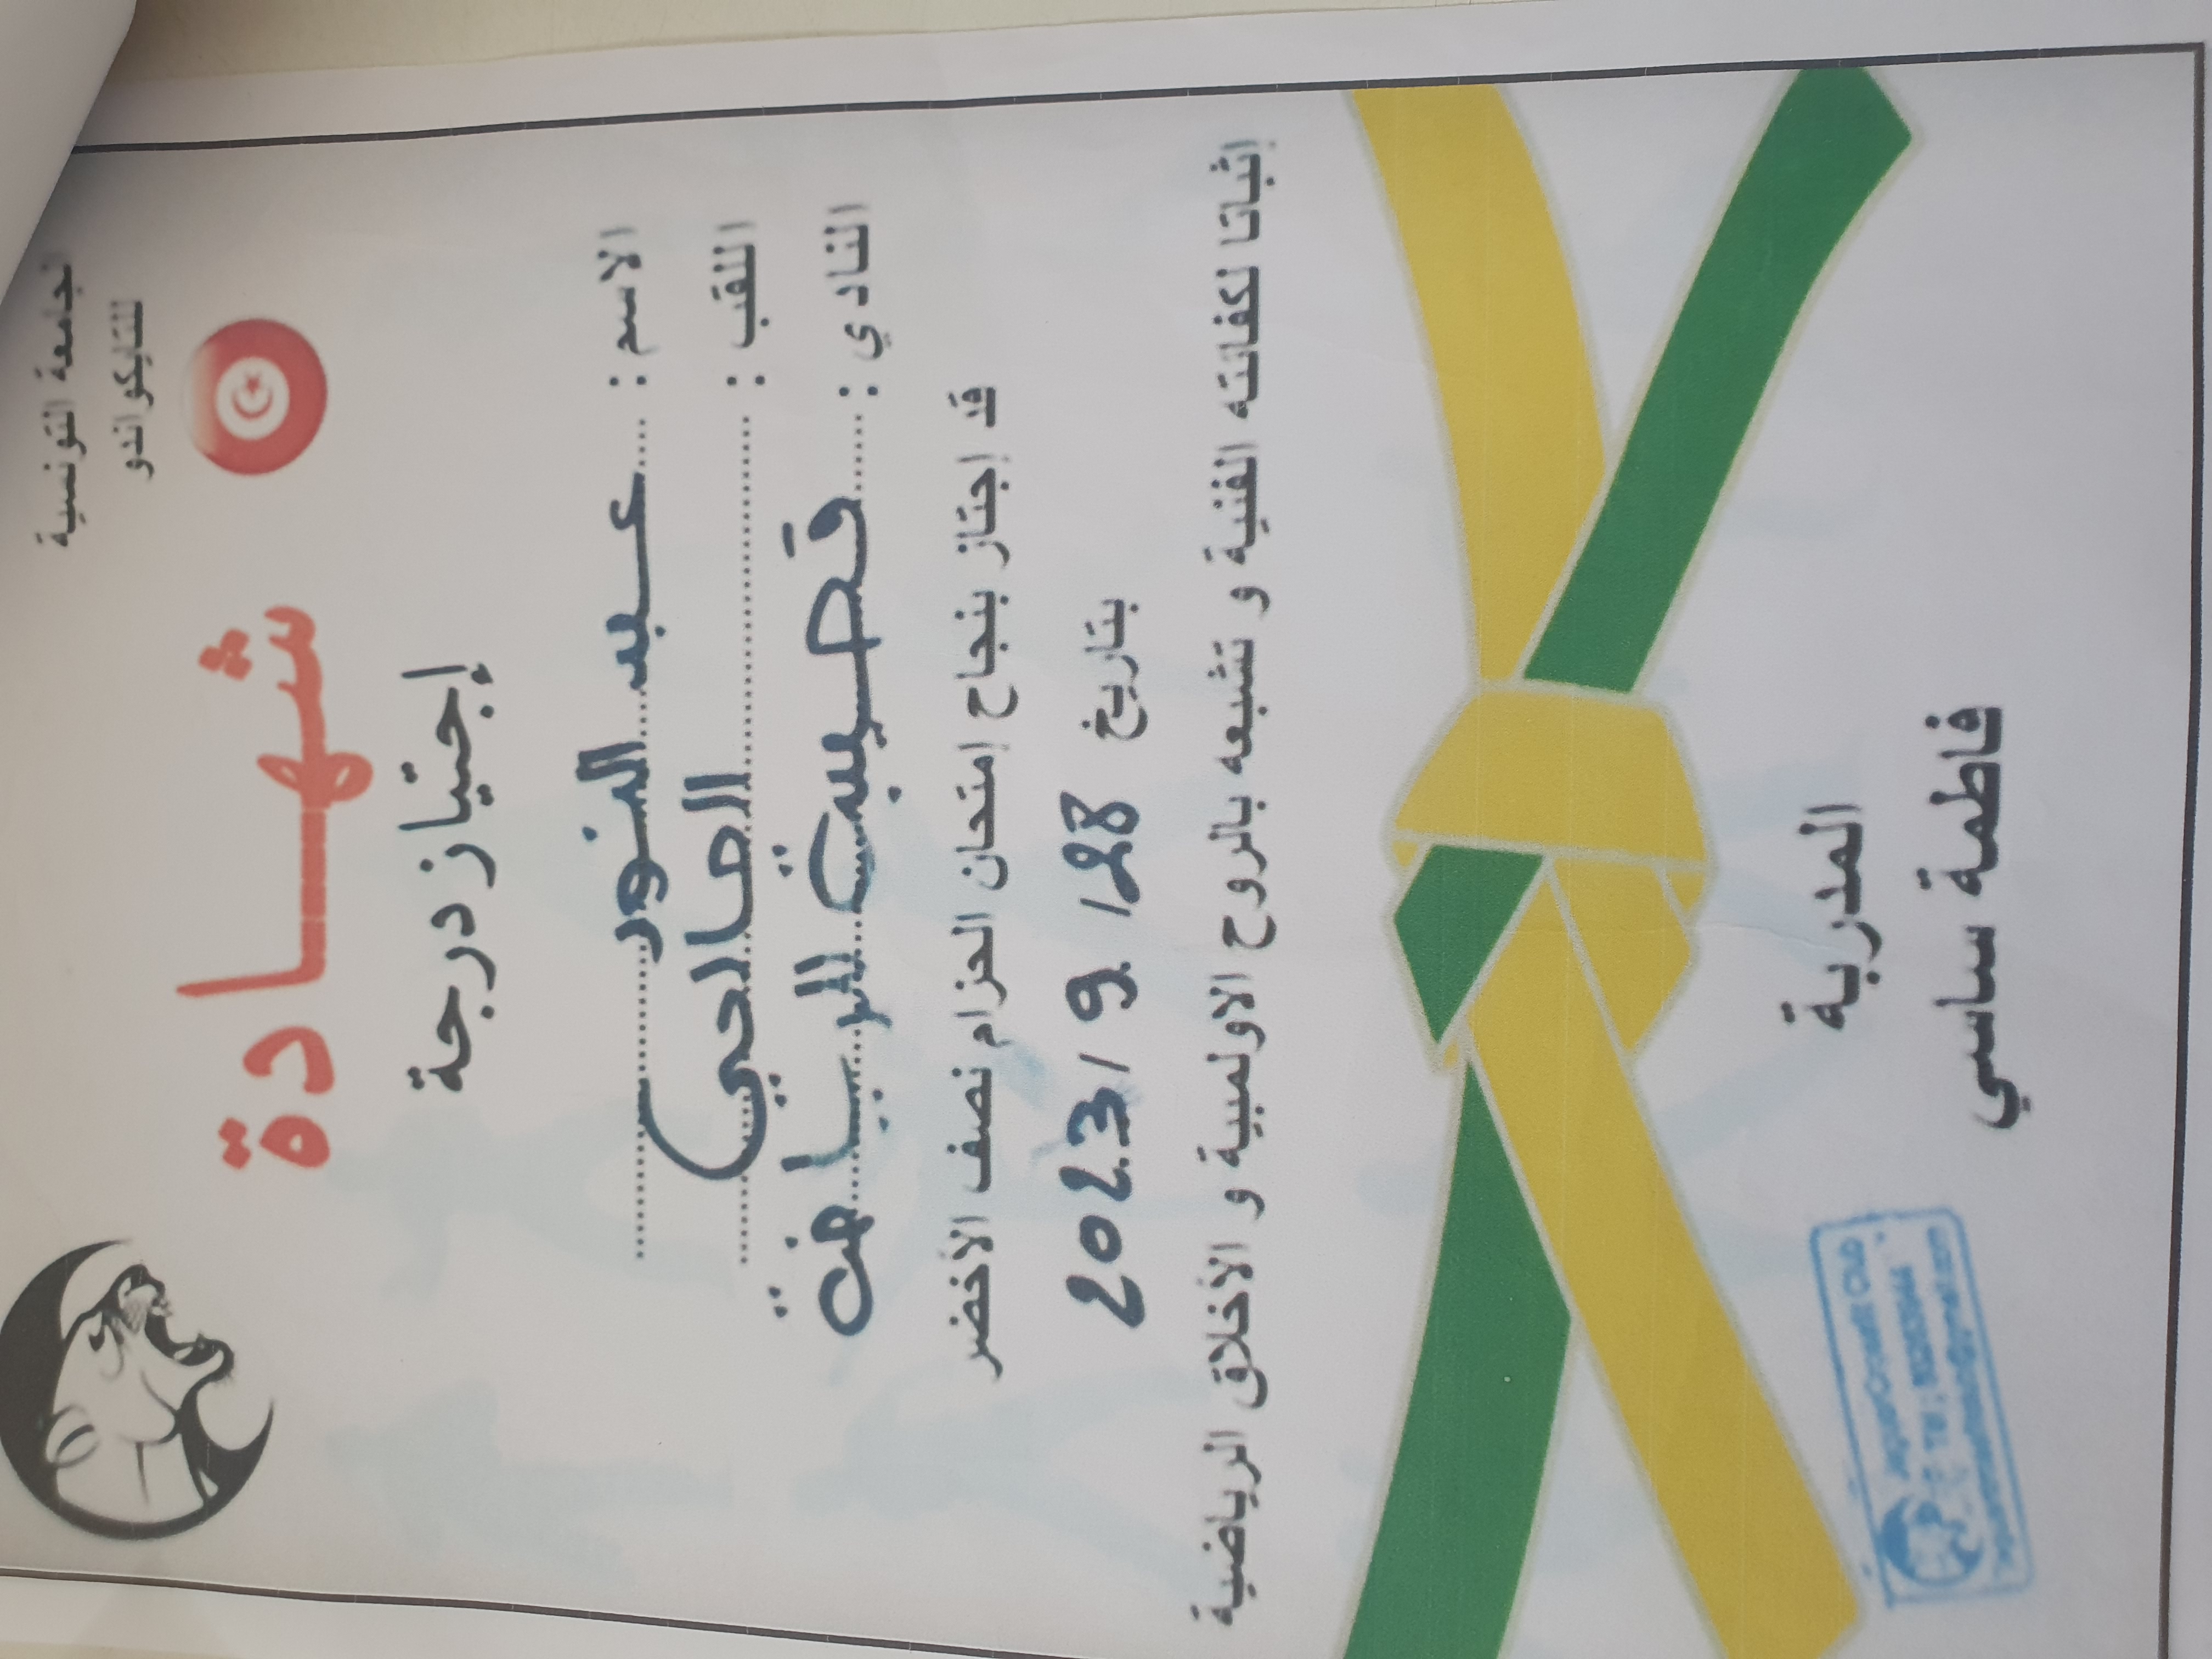 الجامعة التونسية
للتايكواندو
شهادة
إجتياز درجة
الاسم : عبد النور
اللقب : الصالحي
النادي : قصيبة الرياضة
قد إجتاز بنجاح إمتحان الحزام نصف الأخضر
بتاريخ 28/ 9 /2023
إثباتا لكفائته الفنية و تشبعه بالروح الاولمبية و الأخلاق الرياضية
المدربة
فاطمة ساسي